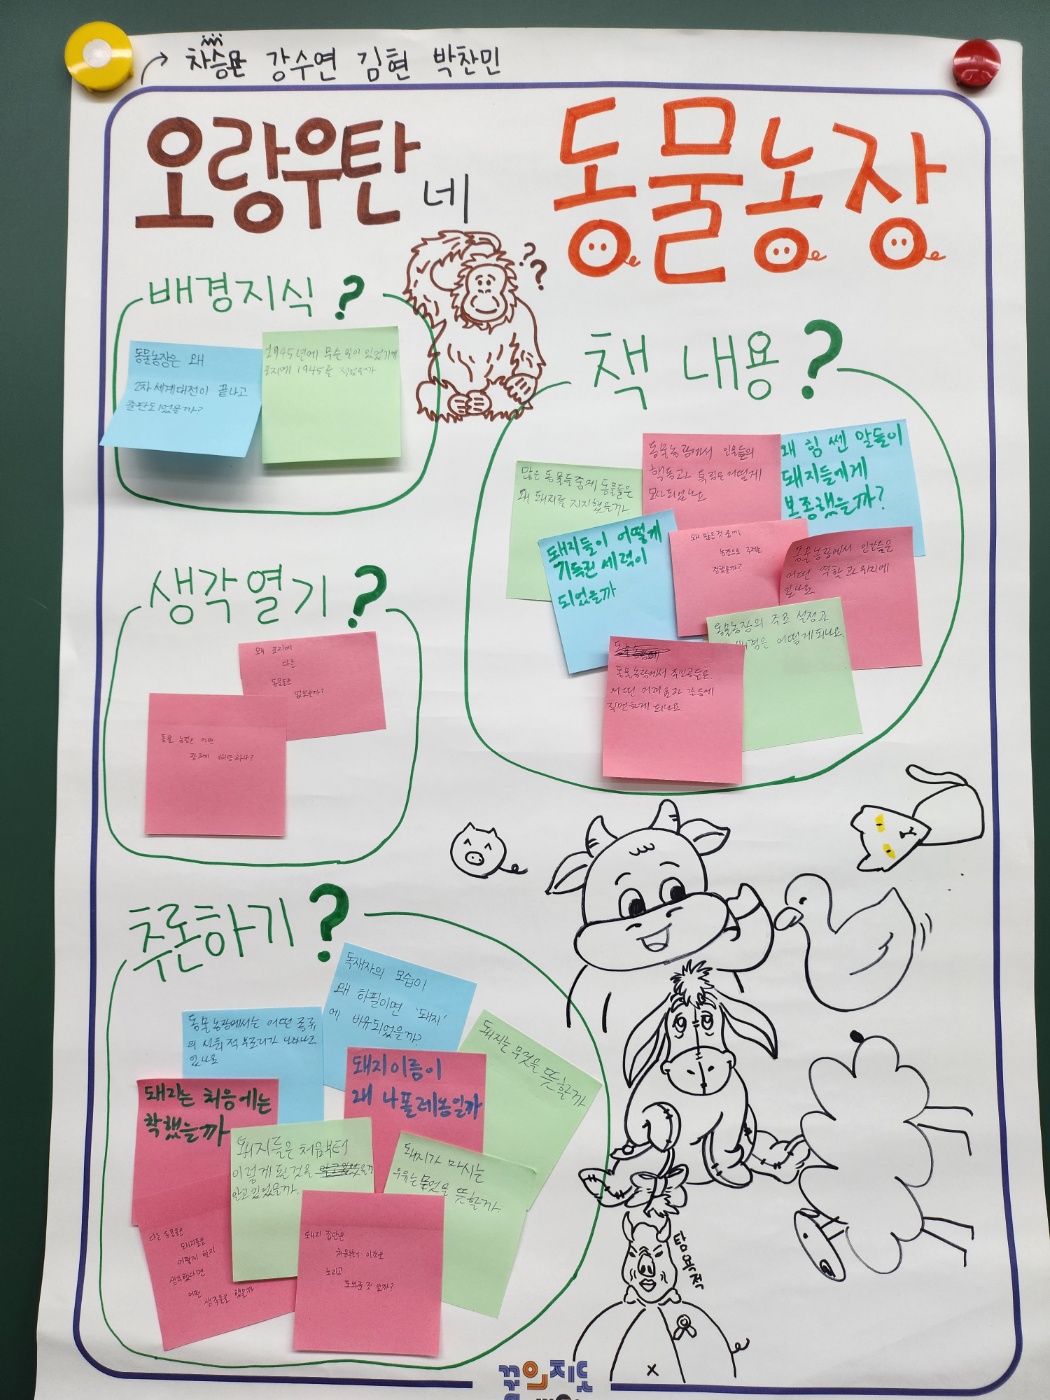 차승문 강수연 김현 박찬민
오랑우탄네
동물농장
배경지식?
동물농장은 왜
2차 세계대전이 끝나고
출판되었을까?
1945년에 무슨 일이 있었기에
1945를
책 내용?
많은 동물들 중에 동물들은
왜 돼지를 지지했을까
동물농장에서 인물들의
행동과 특징은 어떻게
묘사되었나요
왜 힘 쎈 말들이
돼지들에게
복종했을까?
돼지들이 어떻게
기득권 세력이
되었을까
동물농장에서 인물들은
어떤 역할과 위치에
있나요
동물농장의 주요 설정과
배경은 어떻게 되나요.
동물농장에서 주인공들은
어떤 어려움과 갈등에
직면하게 되나요
생각열기?
왜
다른
동물 농장은 어떤
추론하기?
독재자의 모습이
왜 하필이면 '돼지'
에 비유되었을까?
동물농장에서는 어떤 종류
의 사회적 부조리가 나타나고
있나요
돼지는 무엇을 뜻할까
돼지이름이
왜 나폴레옹일까
돼지는 처음에는
착했을까
돼지들은 처음부터
이렇게 될것을
알고 있었을까.
돼지가 마시는
우유는 무엇을 뜻할까
다른 동물들은
돼지들을
어떻게
어떤
돼지
처음부터
탐욕적
꿈의지도